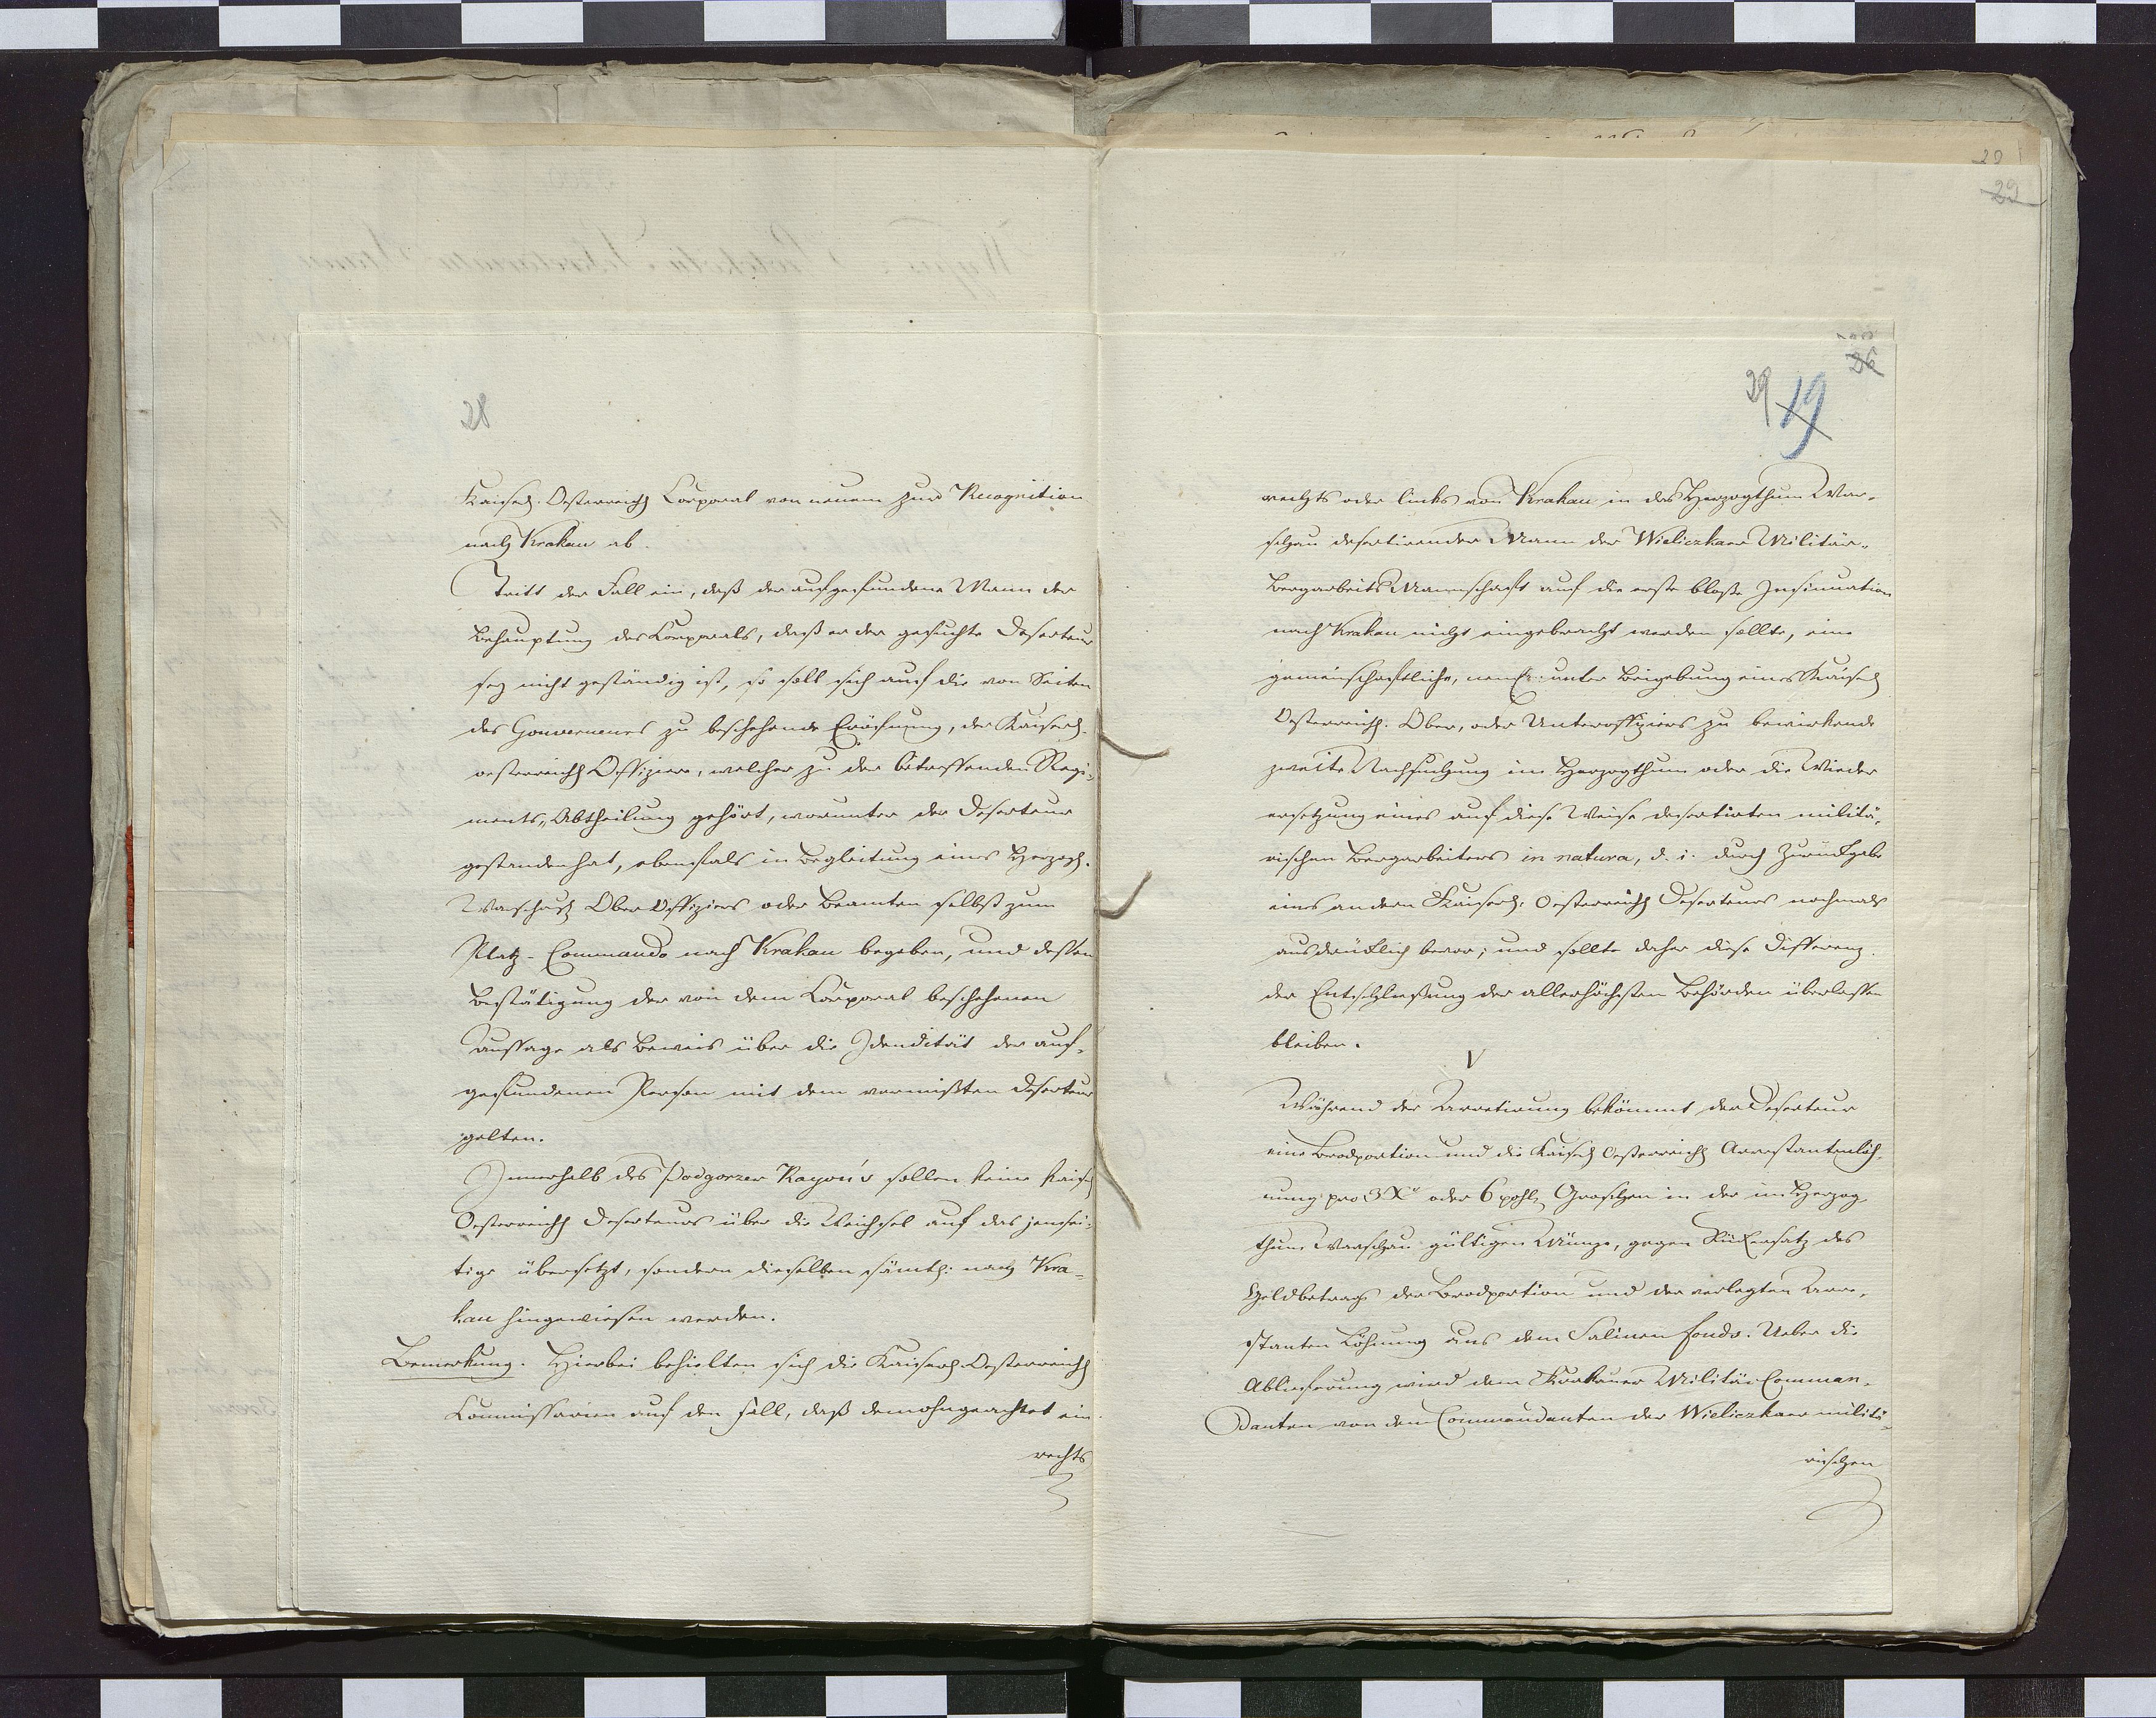 28
Kaiserl. Oesterreich Corporal von neuem zur Recognition
nach Krakau ab.
Tritt der Fall ein, daß der aufgefundene Mann der
Behauptung des Corporals, daß er der gesuchte Deserteur
sey nicht geständig ist, so soll sich auf die von Seiten
des Gouverneurs zu beschehende Eröfnung, der Kaiserl.
oesterreich Offizier, welcher zu der betreffenden Regi-
ments-Abtheilung gehört, worunter der Deserteur
gestanden hat, ebenfals in Begleitung eines Herzogl.
Warschau Ober Offiziers oder Beamten selbst zum
Platz-Commando nach Krakau begeben, und dessen
Bestätigung der von dem Corporal beschehenen
Aussage als Beweis über die Idendität der auf-
gefundenen Person mit dem vermißten Deserteur
gelten.
Innerhalb des Podgorzer Rayon's sollen keine Kaiserl
Oesterreich Deserteurs über die Weichsel auf das jensei-
tige übersetzt, sondern dieselben sämtl: nach Kra-
kau hingewiesen werden.
Bemerkung. Hierbei behielten sich die Kaiserl. Oesterreich
Commissarien auf den Fall, daß demohngeachtet ein
rechts
29
29
26
29 19
rechts oder links von Krakau in das Herzogthum War-
schau desertirender Mann der Wieliczkaer Militär-
Bergarbeits Mannschaft auf die erste bloße Insinuation
nach Krakau nicht eingebracht werden sollte, eine
gemeinschaftliche, neml: unter Beigebung eines Kaiserl
Oesterreich. Ober, oder Unteroffiziers zu bewirkende
zweite Nachsuchung im Herzogthum oder die Wieder
ersetzung eines auf diese Weise desertirten militä-
rischen Bergarbeiters in natura, d. i. durch Zurückgabe
eines andern Kaiserl: Oesterreich Deserteurs nochmals
ausdrücklich bevor; und sollte daher diese Differenz
der Entschließung der allerhöchsten Behörden überlassen
bleiben.
V
Während der Arretirung bekömmt der Deserteur
eine Brodportion und die Kaiserl Oesterreich Arrestantenlöh-
nung pro 3 Xr oder 6 pohl. Groschen in der im Herzog-
thum Warschau gültigen Münze, gegen Rückersatz des
Geldbetrags der Brodportion und der verlegten Arre-
stanten Löhnung aus dem Salinen fonds. Ueber die
Ablieferung wird dem Krakauer Militär Comman-
danten von dem Commandanten der Wieliczkaer militä-
rischen